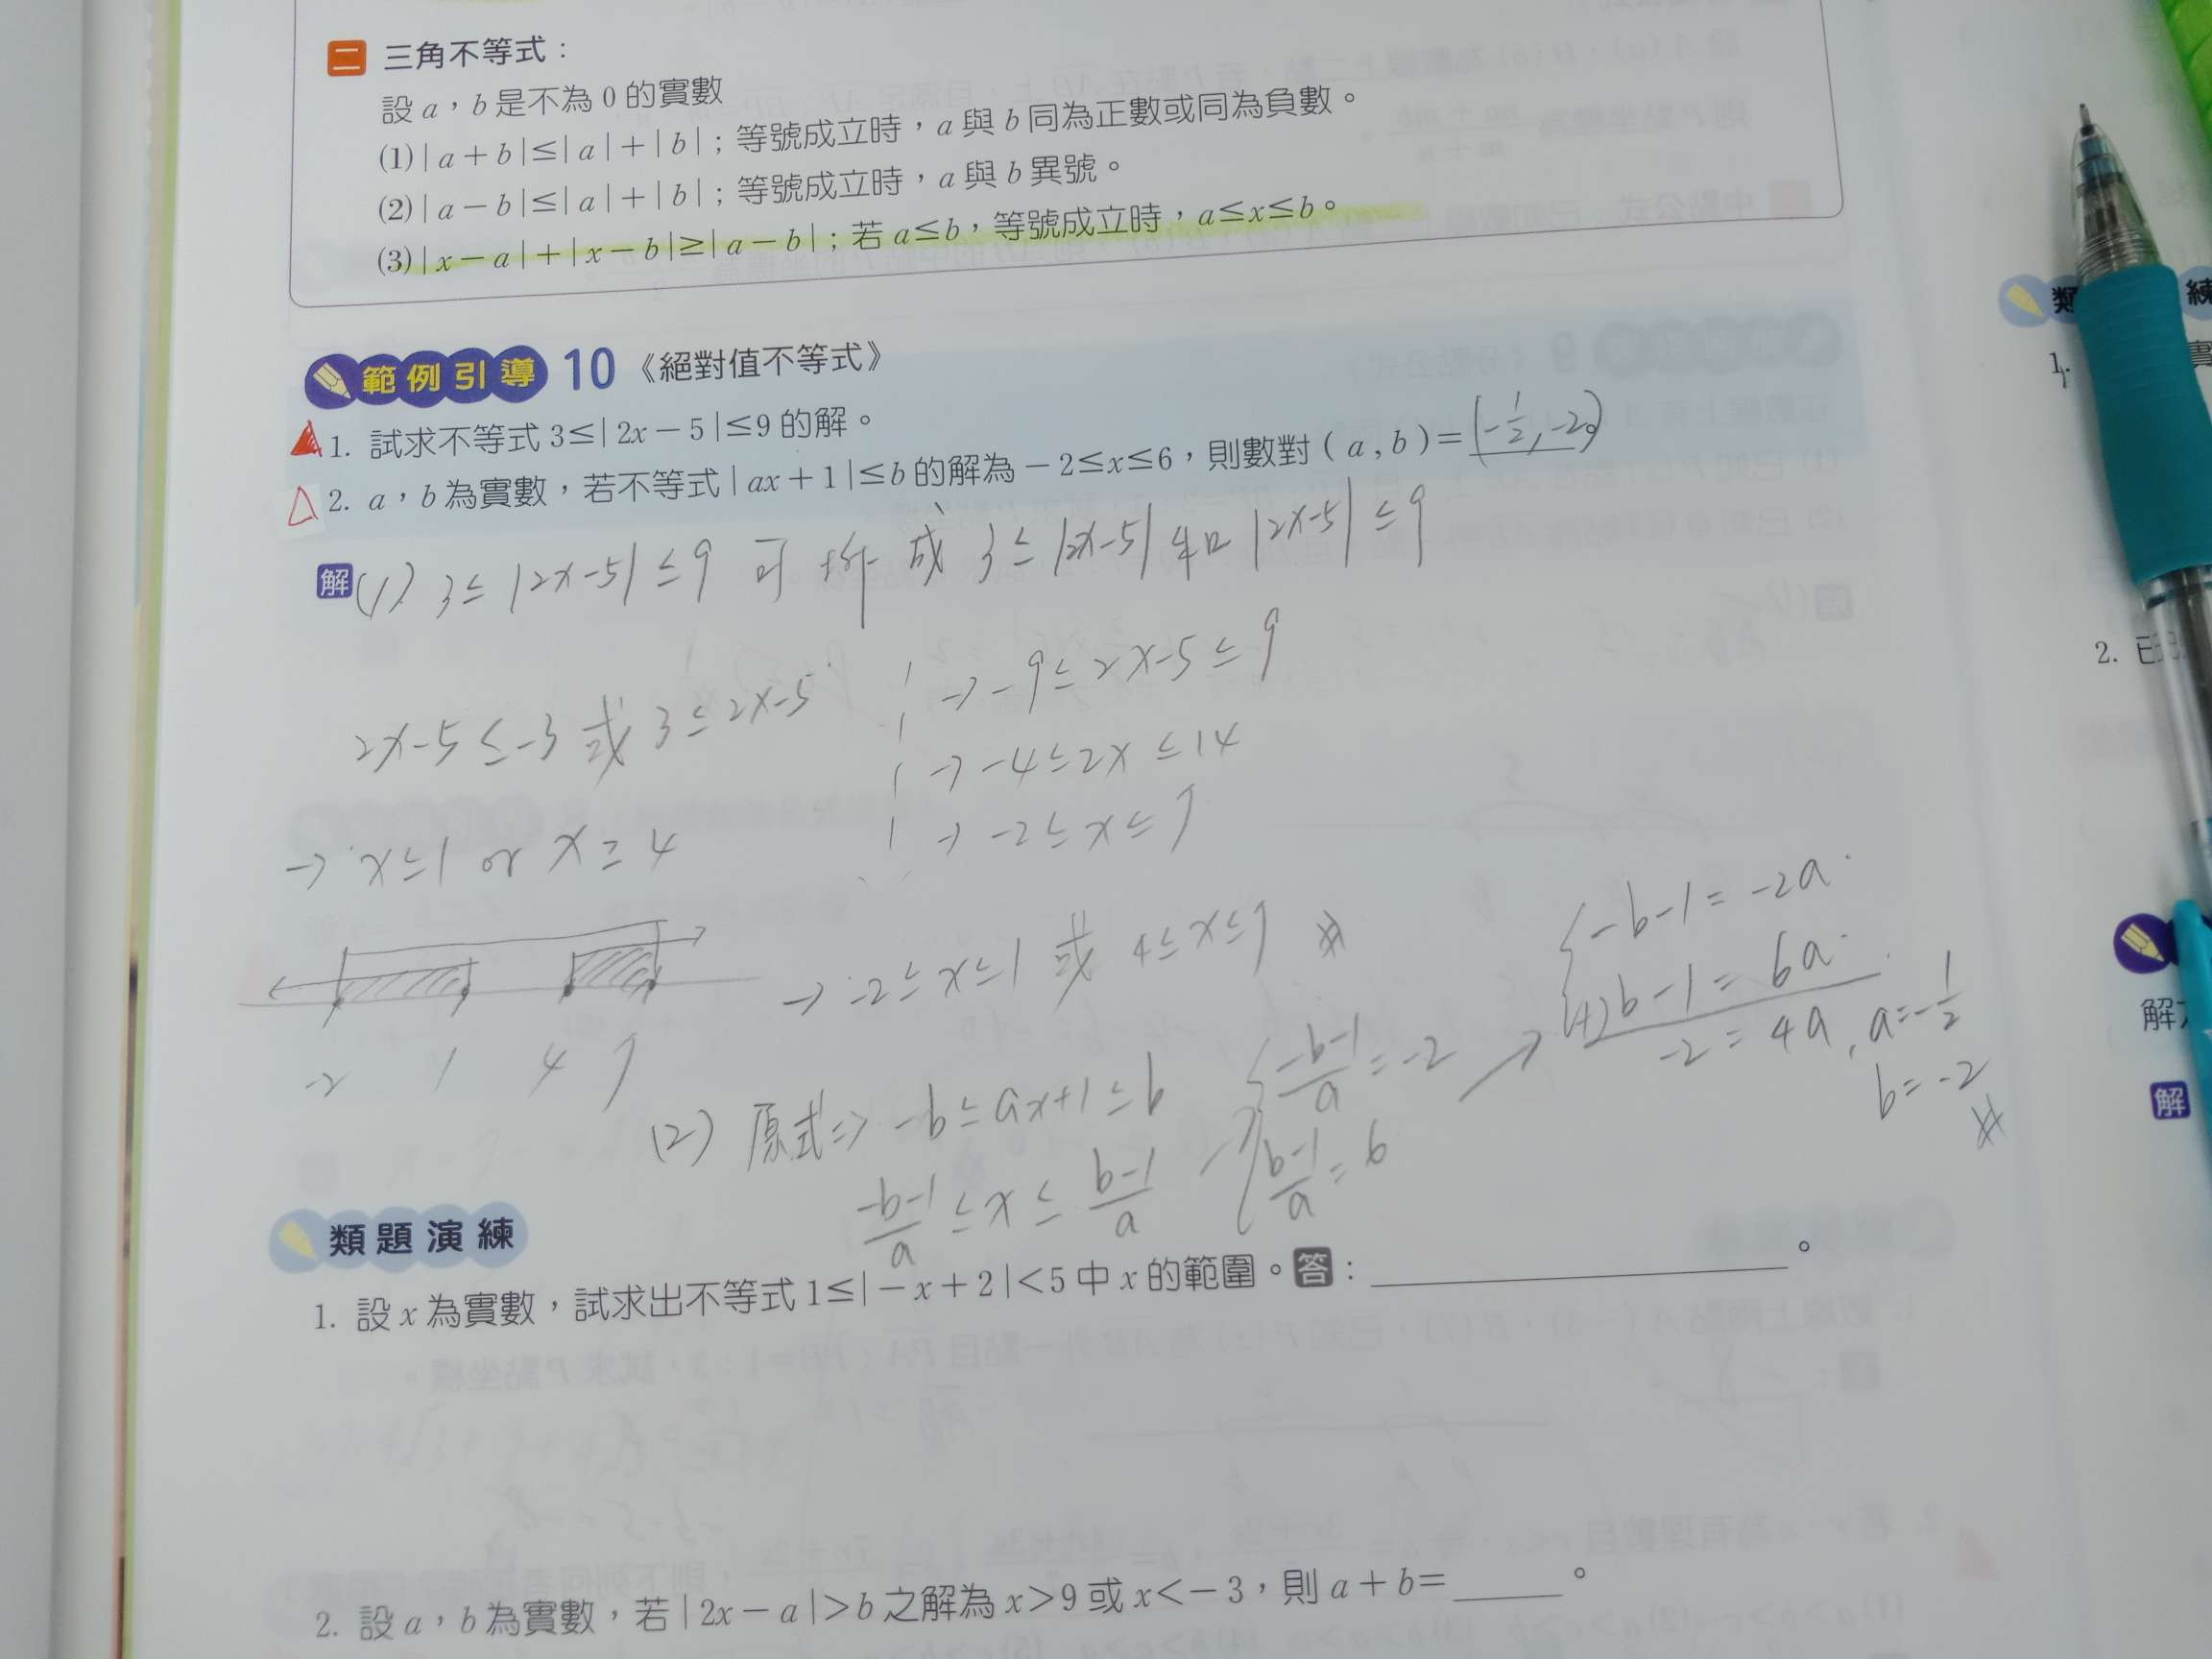 二 三角不等式：
設 a，b 是不為 0 的實數
(1)|a+b|≤|a|+|b|；等號成立時，a 與 b 同為正數或同為負數。
(2)|a−b|≤|a|+|b|；等號成立時，a 與 b 異號。
(3)|x−a|+|x−b|≥|a−b|；若 a≤b，等號成立時，a≤x≤b。
範例引導 10《絕對值不等式》
1. 試求不等式 3≤|2x−5|≤9 的解。
2. a，b 為實數，若不等式|ax+1|≤b 的解為−2≤x≤6，則數對(a,b)=(-1/2,-2)。
解 (1) 3≤|2x-5|≤9 可拆成 3≤|2x-5| 和 |2x-5|≤9
2x-5≤-3 或 3≤2x-5
→ -9≤2x-5≤9
→ -4≤2x≤14
→ x≤1 or x≥4
→ -2≤x≤7
-2 1 4 7
→ -2≤x≤1 或 4≤x≤7
(2) 原式⇒ -b≤ax+1≤b
(-b-1)/a ≤ x ≤ (b-1)/a
(-b-1)/a = -2
(b-1)/a = 6
-b-1 = -2a
(+) b-1 = 6a
-2 = 4a, a=-1/2
b=-2
類題演練
1. 設 x 為實數，試求出不等式 1≤|−x+2|<5 中 x 的範圍。答：。
2. 設 a，b 為實數，若|2x−a|>b 之解為 x>9 或 x<−3，則 a+b=。
類
練
1.
2.
解
解